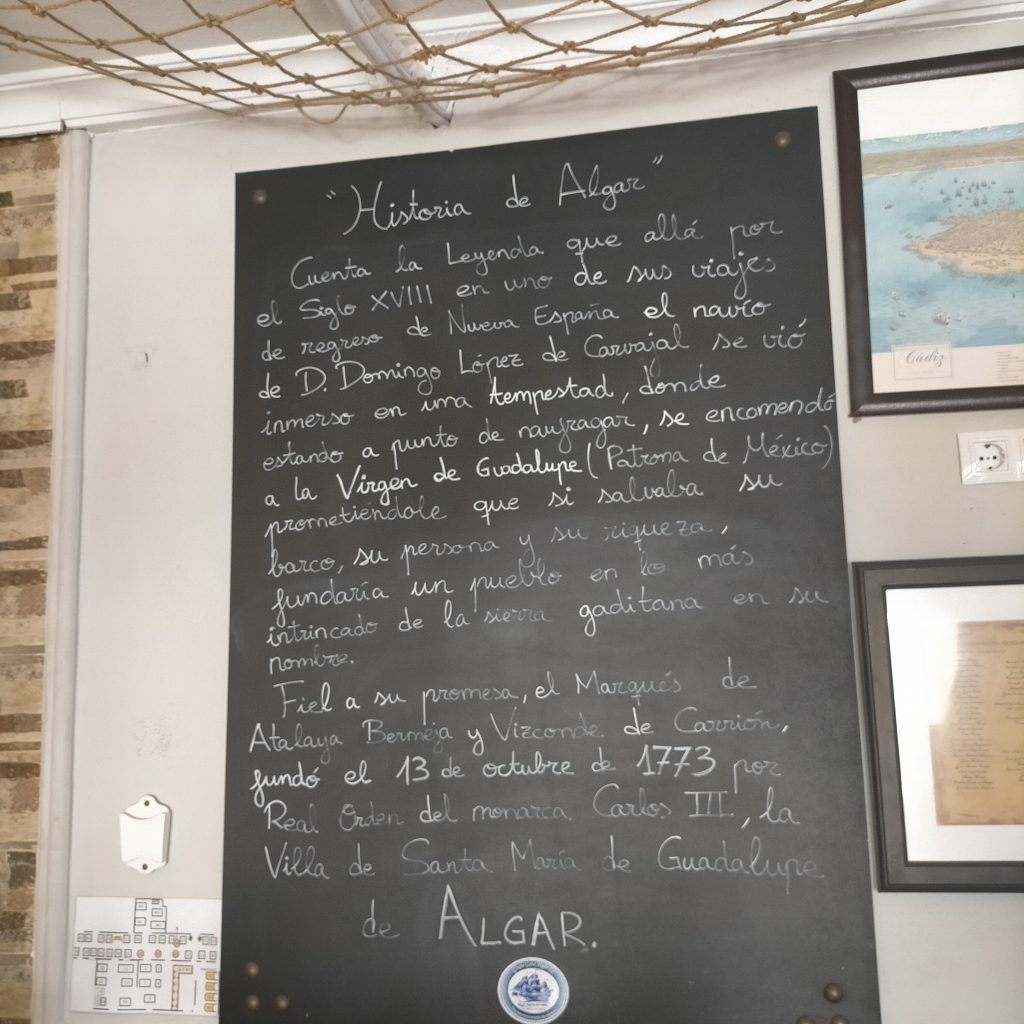 "Historia de Algar"
Cuenta la Leyenda que allá por
el Siglo XVIII en uno de sus viajes
de regreso de Nueva España el navío
de D. Domingo López de Carvajal se vió
inmerso en una tempestad, donde
estando a punto de naufragar, se encomendó
a la Virgen de Guadalupe (Patrona de México)
prometiéndole que si salvaba su
barco, su persona y su riqueza,
fundaría un pueblo en lo más
intrincado de la sierra gaditana en su
nombre.
Fiel a su promesa, el Marqués de
Atalaya Bermeja y Vizconde de Carrión,
fundó el 13 de octubre de 1773 por
Real Orden del monarca Carlos III, la
Villa de Santa María de Guadalupe
de ALGAR.
Cádiz